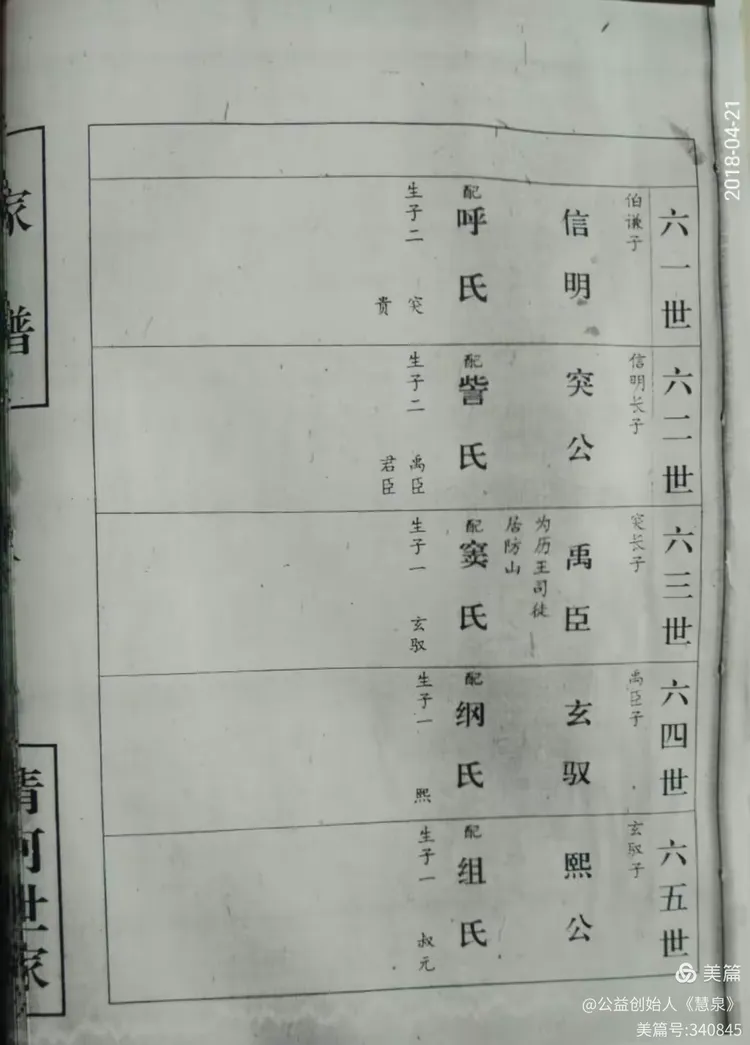 六一世
伯谦子
信明
配
呼氏
生子二 突
贵
六二世
信明长子
突公
配
訾氏
生子二 禹臣
君臣
六三世
突长子
禹臣
为历王司徒
居防山
配
窦氏
生子一 玄驭
六四世
禹臣子
玄驭
配
纲氏
生子一 熙
六五世
玄驭子
熙公
配
组氏
生子一 叔元
家谱
清河世家
2018-04-21
美篇
@公益创始人《慧泉》
美篇号:340845